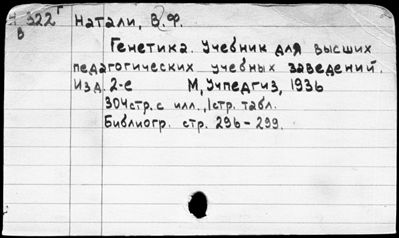 Н 322 г Натали, В.Ф.
В
Генетика. Учебник для высших
педагогических учебных заведений.
Изд. 2-е М, Учпедгиз, 1936
304 стр. с илл., 1 стр. табл.
Библиогр. стр. 296-299.